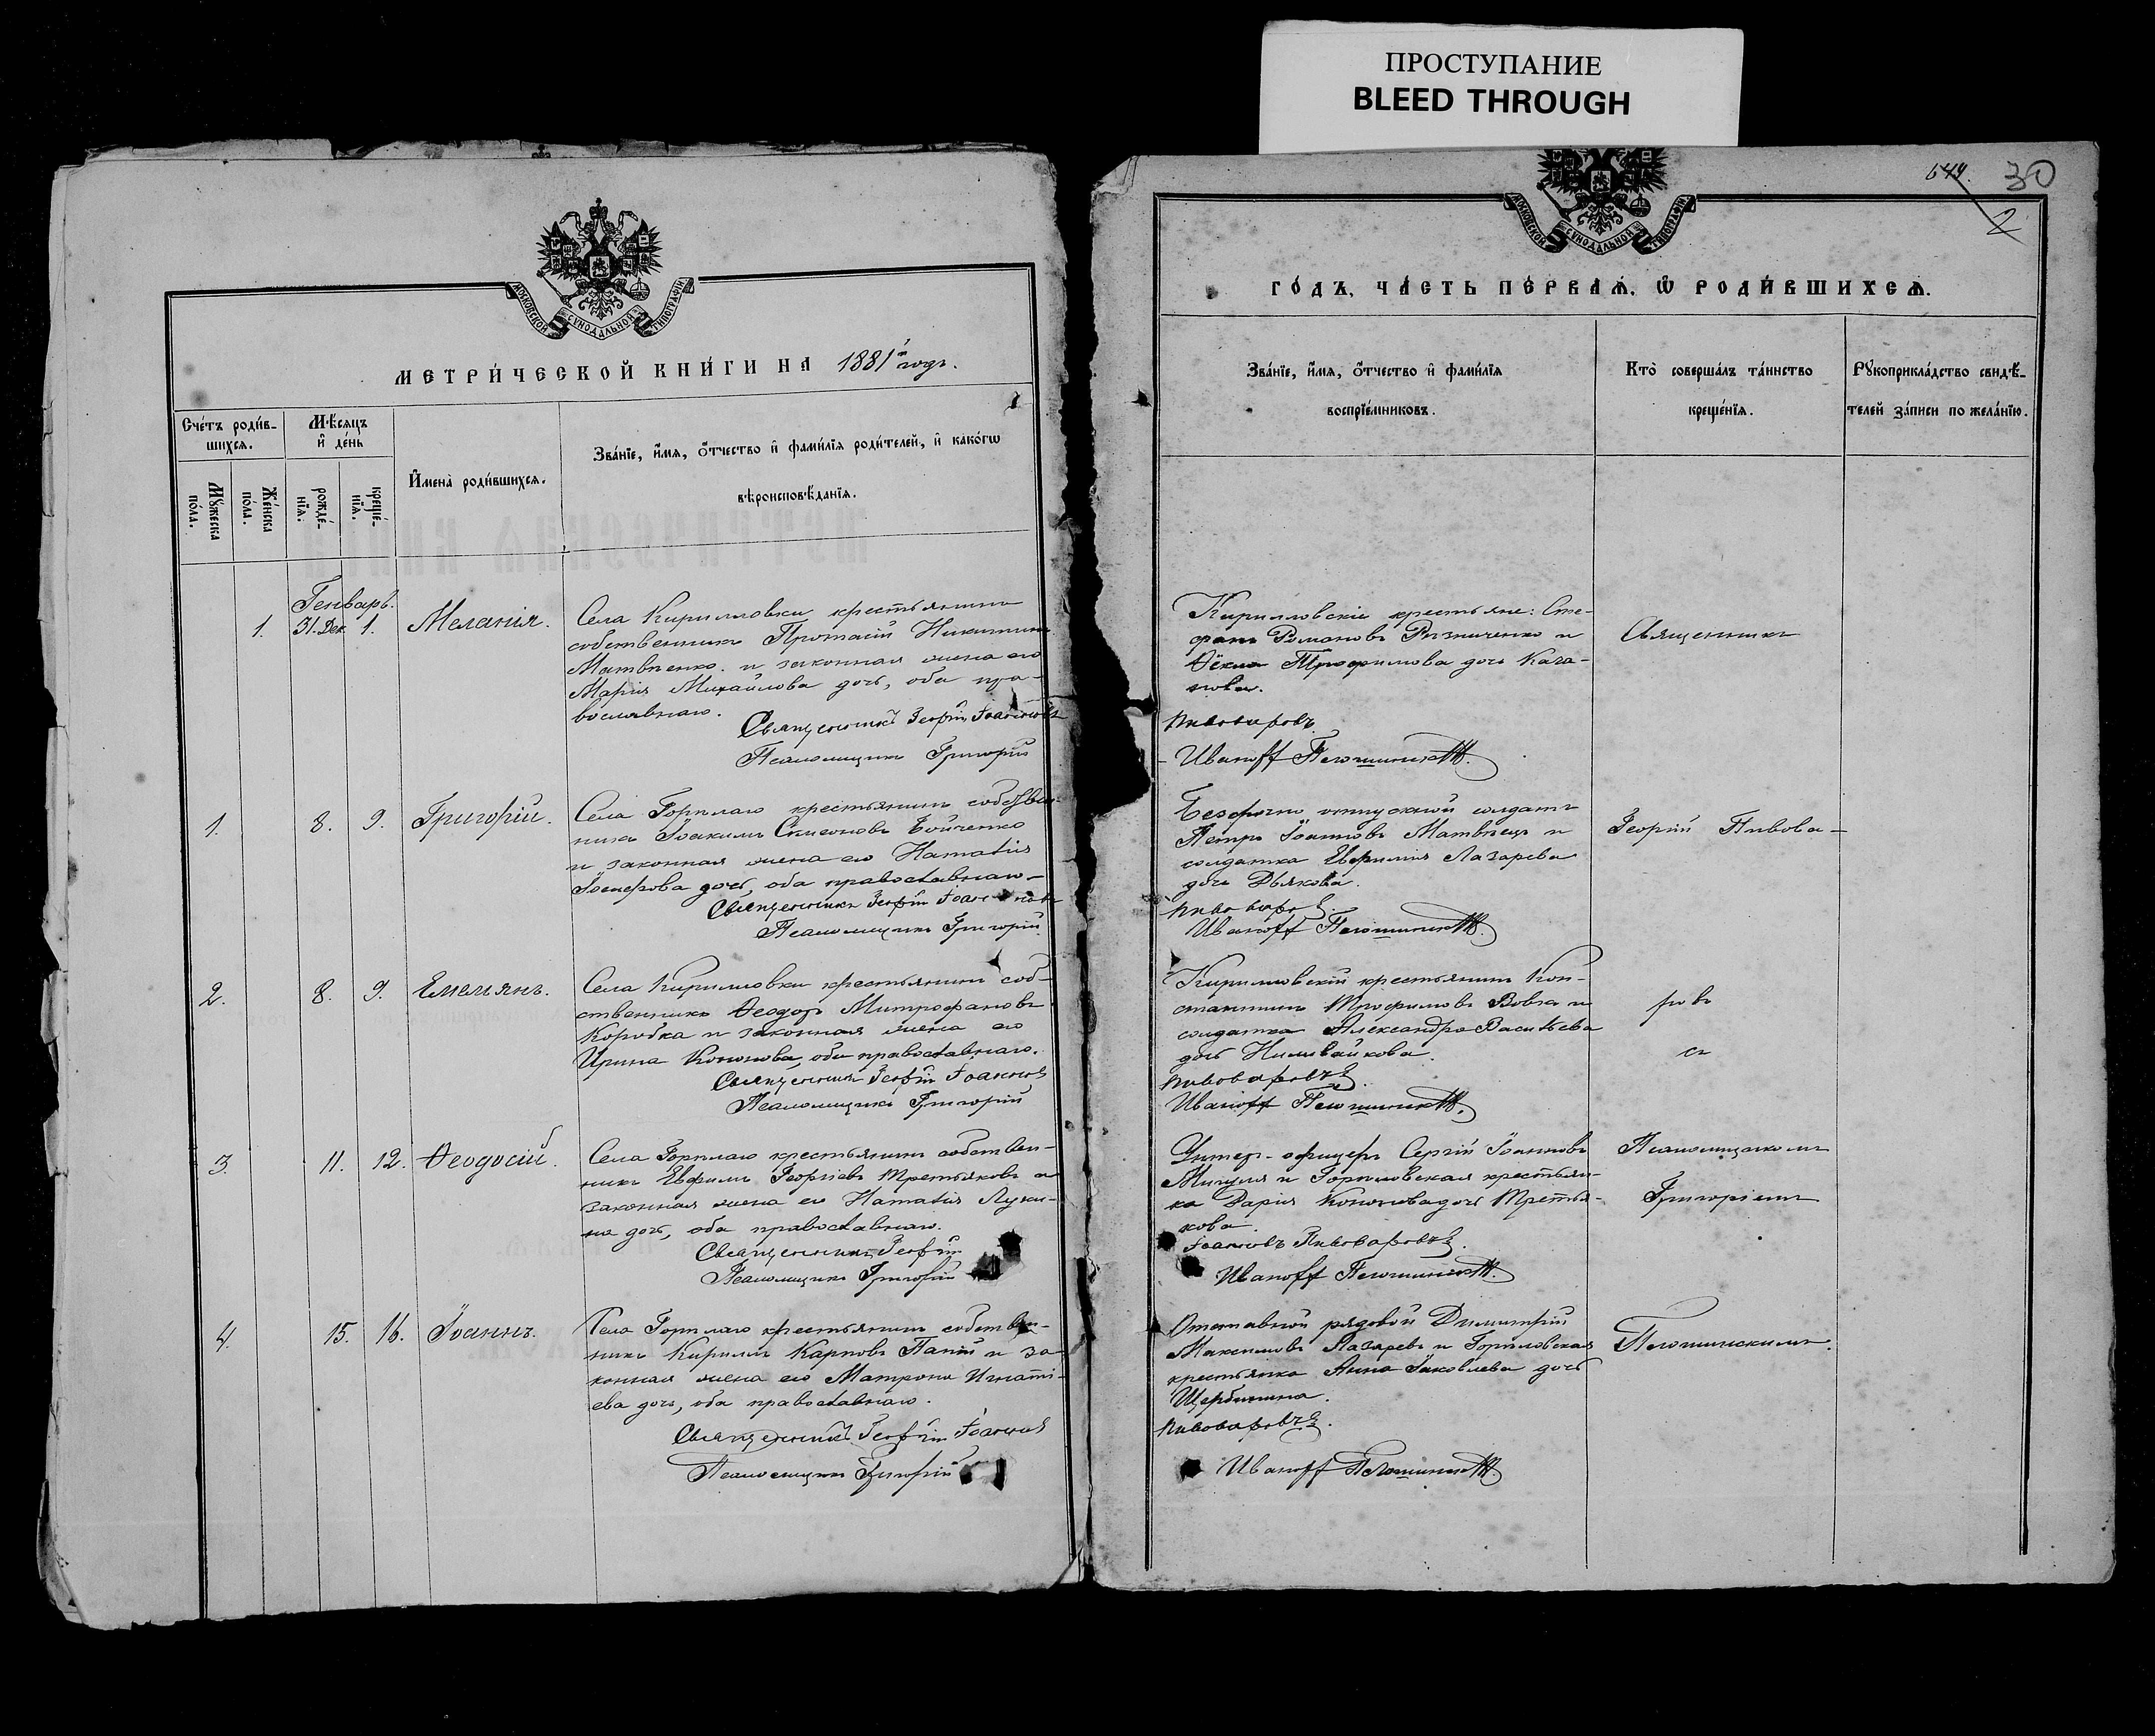 ПРОСТУПАНИЕ
BLEED THROUGH
МОСКОВСКОЙ СУНОДАЛЬНОЙ ТИПОГРАФІИ
МЕТРИ́ЧЕСКОЙ КНИ́ГИ НА 1881й годъ.
Сче́тъ роди́в-
шихся.
Мѣ́сяцъ
и҆ де́нь
Мꙋ́жеска
по́ла.
Же́нска
по́ла.
рожде́-
нїѧ.
креще́-
нїѧ.
И҆мена̀ роди́вшихсѧ.
Зва́нїе, и҆́мѧ, ѻ҆́тчество и҆ фами́лїѧ роди́телей, и҆ како́гѡ
вѣроисповѣ́данїѧ.
Генварь.
1. 31. Дек. 1. Меланія.
Села Кирилловки крестьянинъ
собственникъ Протасій Никитинъ
Матвѣенко. и законная жена его
Марія Михайлова дочь, оба пра-
вославнаго.
Священникъ Георгій Іоанновъ
Псаломщикъ Григорій
1. 8. 9. Григорій.
Села Горплаго крестьянинъ собствен-
никъ Іоакимъ Симеоновъ Бойченко
и законная жена его Наталія
Іосифова дочь, оба православнаго
Священникъ Георгій Іоанновъ
Псаломщикъ Григорій
2. 8. 9. Емельянъ.
Села Кирилловки крестьянинъ соб-
ственникъ Ѳеодоръ Митрофановъ
Коробка и законная жена его
Ирина Кононова, оба православнаго.
Священникъ Георгій Іоанновъ
Псаломщикъ Григорій
3. 11. 12. Ѳеодосій.
Села Горплаго крестьянинъ собствен-
никъ Евфимъ Георгіевъ Третьяковъ и
законная жена его Наталія Луки-
на дочь, оба православнаго.
Священникъ Георгій
Псаломщикъ Григорій
4. 15. 16. Іоаннъ.
Села Горплаго крестьянинъ собствен-
никъ Кириллъ Карповъ Папій и за-
конная жена его Матрона Игнаті-
ева дочь, оба православнаго.
Священникъ Георгій Іоанновъ
Псаломщикъ Григорій
30
2
МОСКОВСКОЙ СУНОДАЛЬНОЙ ТИПОГРАФІИ
ГО́ДЪ, ЧА́СТЬ ПЕ́РВАѦ, Ѡ҆ РОДИ́ВШИХСѦ.
Зва́нїе, и҆́мѧ, ѻ҆́тчество и҆ фами́лїѧ
воспрїе́мниковъ.
Кто̀ соверша́лъ та́инство
креще́нїѧ.
Рꙋкоприкла́дство свидѣ́-
телей за́писи по жела́нїю.
Кирилловскіе крестьяне: Сте-
фанъ Романовъ Резниченко и
Ѳёкла Трофимова дочь Каза-
кова.
Пивоваровъ.
Иваноff Пелошинскій.
Священникъ
Безсрочно отпускной солдатъ
Петръ Іоанновъ Матвѣецъ и
солдатка Евфимія Лазарева
дочь Дьякова.
Пивоваровъ.
Иваноff Пелошинскій.
Георгій Пивова-
Кирилловскій крестьянинъ Кон-
стантинъ Трофимовъ Вовка и
солдатка Александра Васильева
дочь Наливайкова.
Пивоваровъ.
Иваноff Пелошинскій.
ровъ
съ
Унтер-офицеръ Сергій Іоанновъ
Мигуля и Горпловская крестьян-
ка Дарія Кононова дочь Третья-
кова.
Іоанновъ Пивоваровъ.
Иваноff Пелошинскій.
Псаломщикомъ
Григоріемъ
Отставной рядовой Димитрій
Максимовъ Лазаревъ и Горпловская
крестьянка Анна Іаковлева дочь
Щербинина.
Пивоваровъ.
Иваноff Пелошинскій.
Пелошинскимъ.